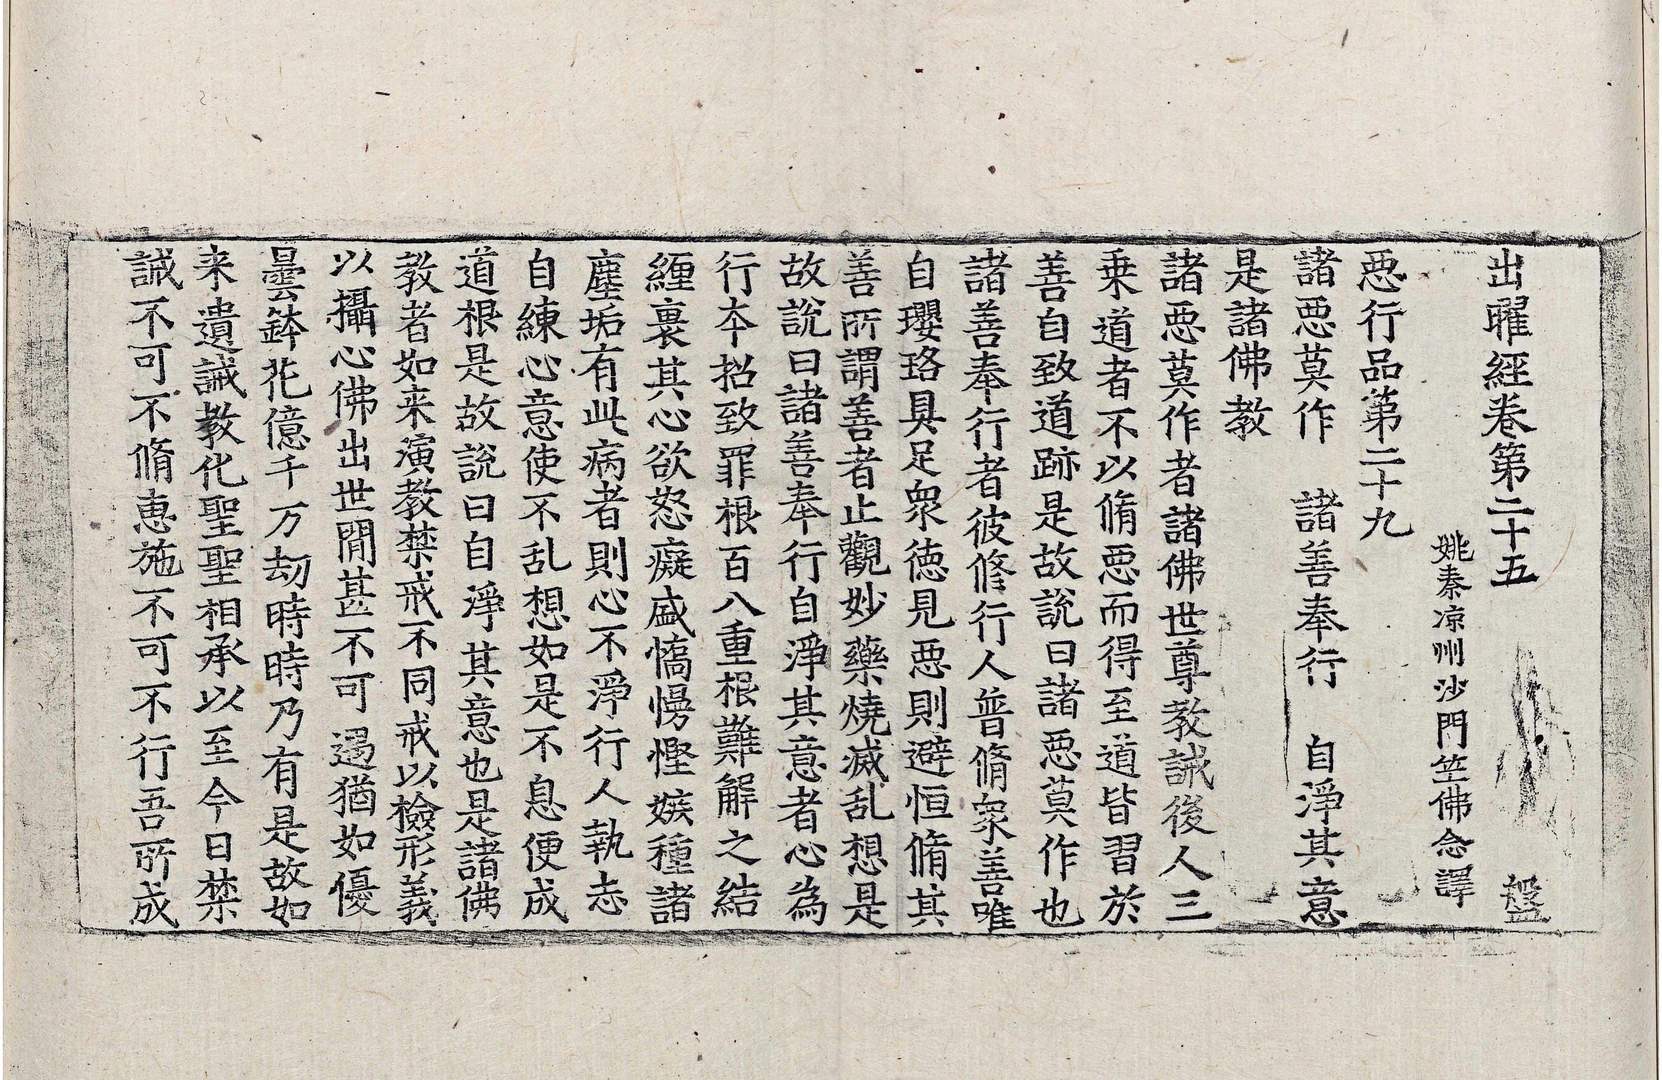 出曜經卷第二十五 盤
姚秦凉州沙門竺佛念譯
惡行品第二十九
諸惡莫作 諸善奉行 自淨其意
是諸佛教
諸惡莫作者諸佛世尊教誡後人三
乗道者不以脩惡而得至道皆習於
善自致道跡是故說曰諸惡莫作也
諸善奉行者彼修行人普脩衆善唯
自瓔珞具足衆徳見惡則避恒脩其
善所謂善者止觀妙藥燒滅乱想是
故說曰諸善奉行自淨其意者心為
行夲招致罪根百八重根難解之結
纒裹其心欲怒癡盛憍慢慳嫉種諸
塵垢有此病者則心不淨行人執志
自練心意使不乱想如是不息便成
道根是故說曰自淨其意也是諸佛
教者如来演教禁戒不同戒以檢形義
以攝心佛出世間甚不可遇猶如優
曇鉢花億千万劫時時乃有是故如
来遺誡教化聖聖相承以至今日禁
誡不可不脩惠施不可不行吾所成